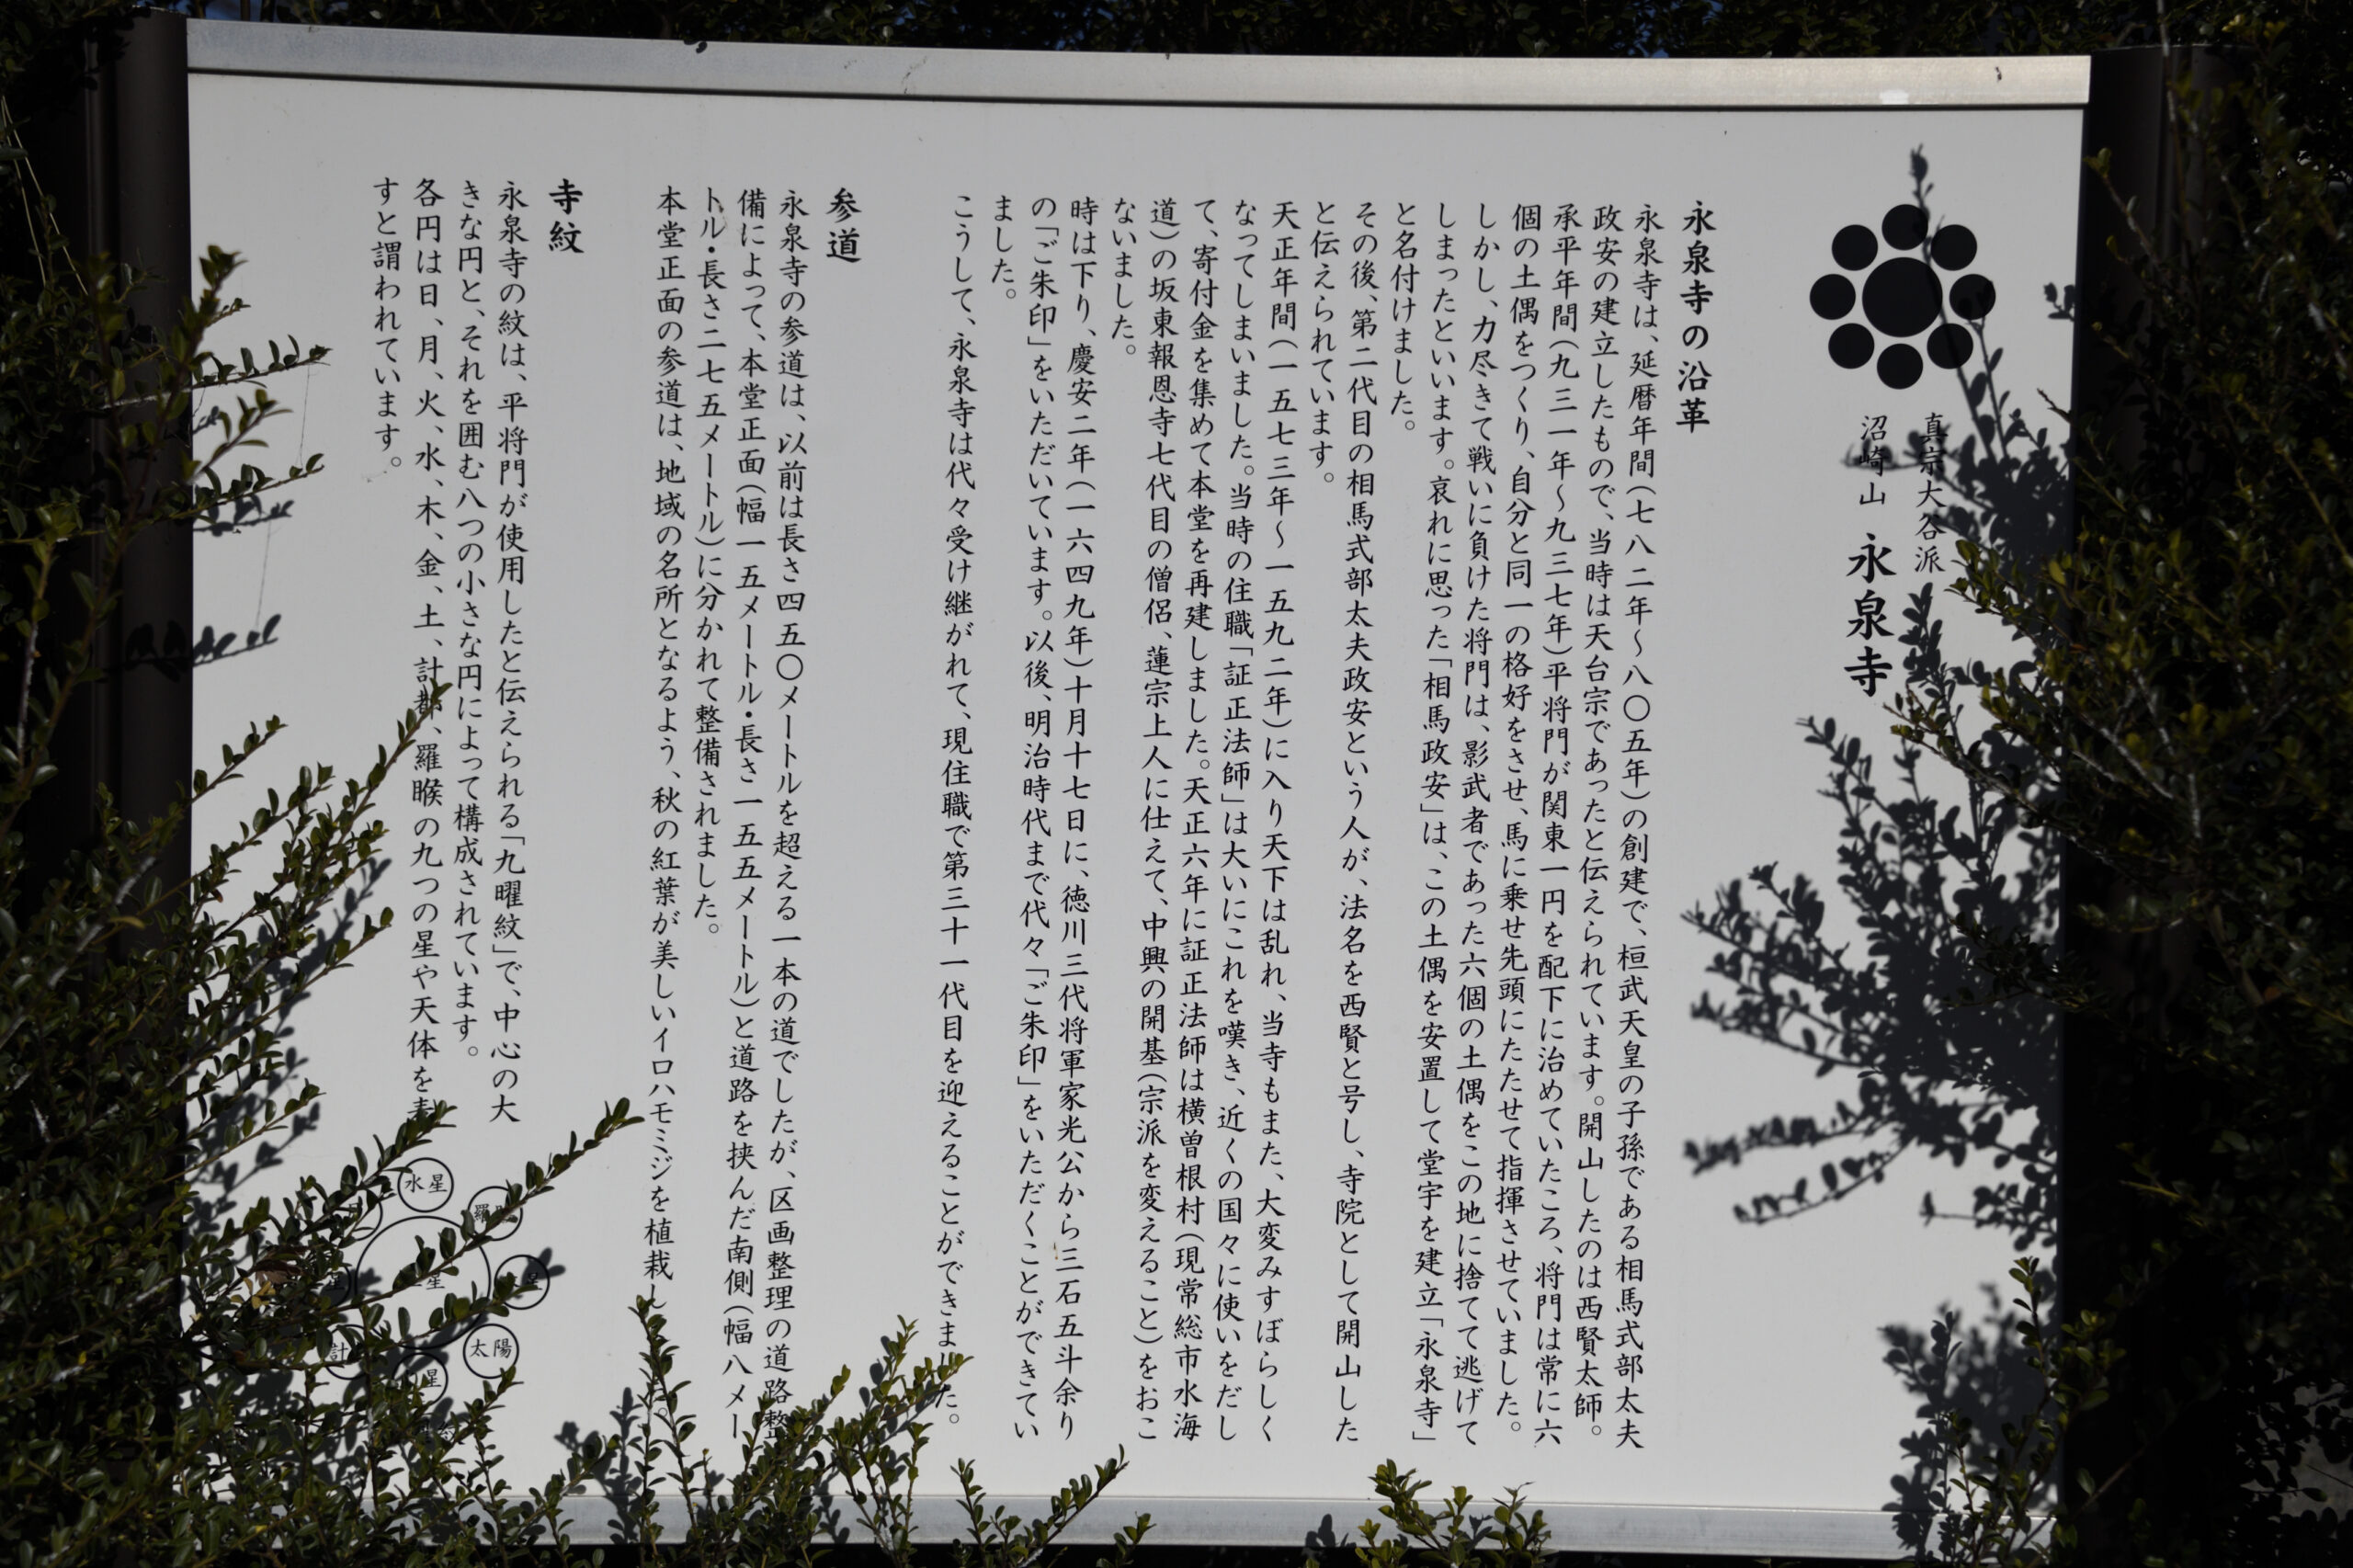 真宗大谷派
沼崎山 永泉寺
永泉寺の沿革
永泉寺は、延暦年間（七八二年～八〇五年）の創建で、桓武天皇の子孫である相馬式部太夫
政安の建立したもので、当時は天台宗であったと伝えられています。開山したのは西賢太師。
承平年間（九三一年～九三七年）平将門が関東一円を配下に治めていたころ、将門は常に六
個の土偶をつくり、自分と同一の格好をさせ、馬に乗せ先頭にたたせて指揮させていました。
しかし、力尽きて戦いに負けた将門は、影武者であった六個の土偶をこの地に捨てて逃げて
しまったといいます。哀れに思った「相馬政安」は、この土偶を安置して堂宇を建立「永泉寺」
と名付けました。
その後、第二代目の相馬式部太夫政安という人が、法名を西賢と号し、寺院として開山した
と伝えられています。
天正年間（一五七三年～一五九二年）に入り天下は乱れ、当寺もまた、大変みすぼらしく
なってしまいました。当時の住職「証正法師」は大いにこれを嘆き、近くの国々に使いをだし
て、寄付金を集めて本堂を再建しました。天正六年に証正法師は横曽根村（現常総市水海
道）の坂東報恩寺七代目の僧侶、蓮宗上人に仕えて、中興の開基（宗派を変えること）をおこ
ないました。
時は下り、慶安二年（一六四九年）十月十七日に、徳川三代将軍家光公から三石五斗余り
の「ご朱印」をいただいています。以後、明治時代まで代々「ご朱印」をいただくことができてい
ました。
こうして、永泉寺は代々受け継がれて、現住職で第三十一代目を迎えることができました。
参道
永泉寺の参道は、以前は長さ四五〇メートルを超える一本の道でしたが、区画整理の道路整
備によって、本堂正面（幅一五メートル・長さ一五五メートル）と道路を挟んだ南側（幅八メー
トル・長さ二七五メートル）に分かれて整備されました。
本堂正面の参道は、地域の名所となるよう、秋の紅葉が美しいイロハモミジを植栽し
寺紋
永泉寺の紋は、平将門が使用したと伝えられる「九曜紋」で、中心の大
きな円と、それを囲む八つの小さな円によって構成されています。
各円は日、月、火、水、木、金、土、計都、羅睺の九つの星や天体を表
すと謂われています。
水星
羅
星
星
太陽
計
星